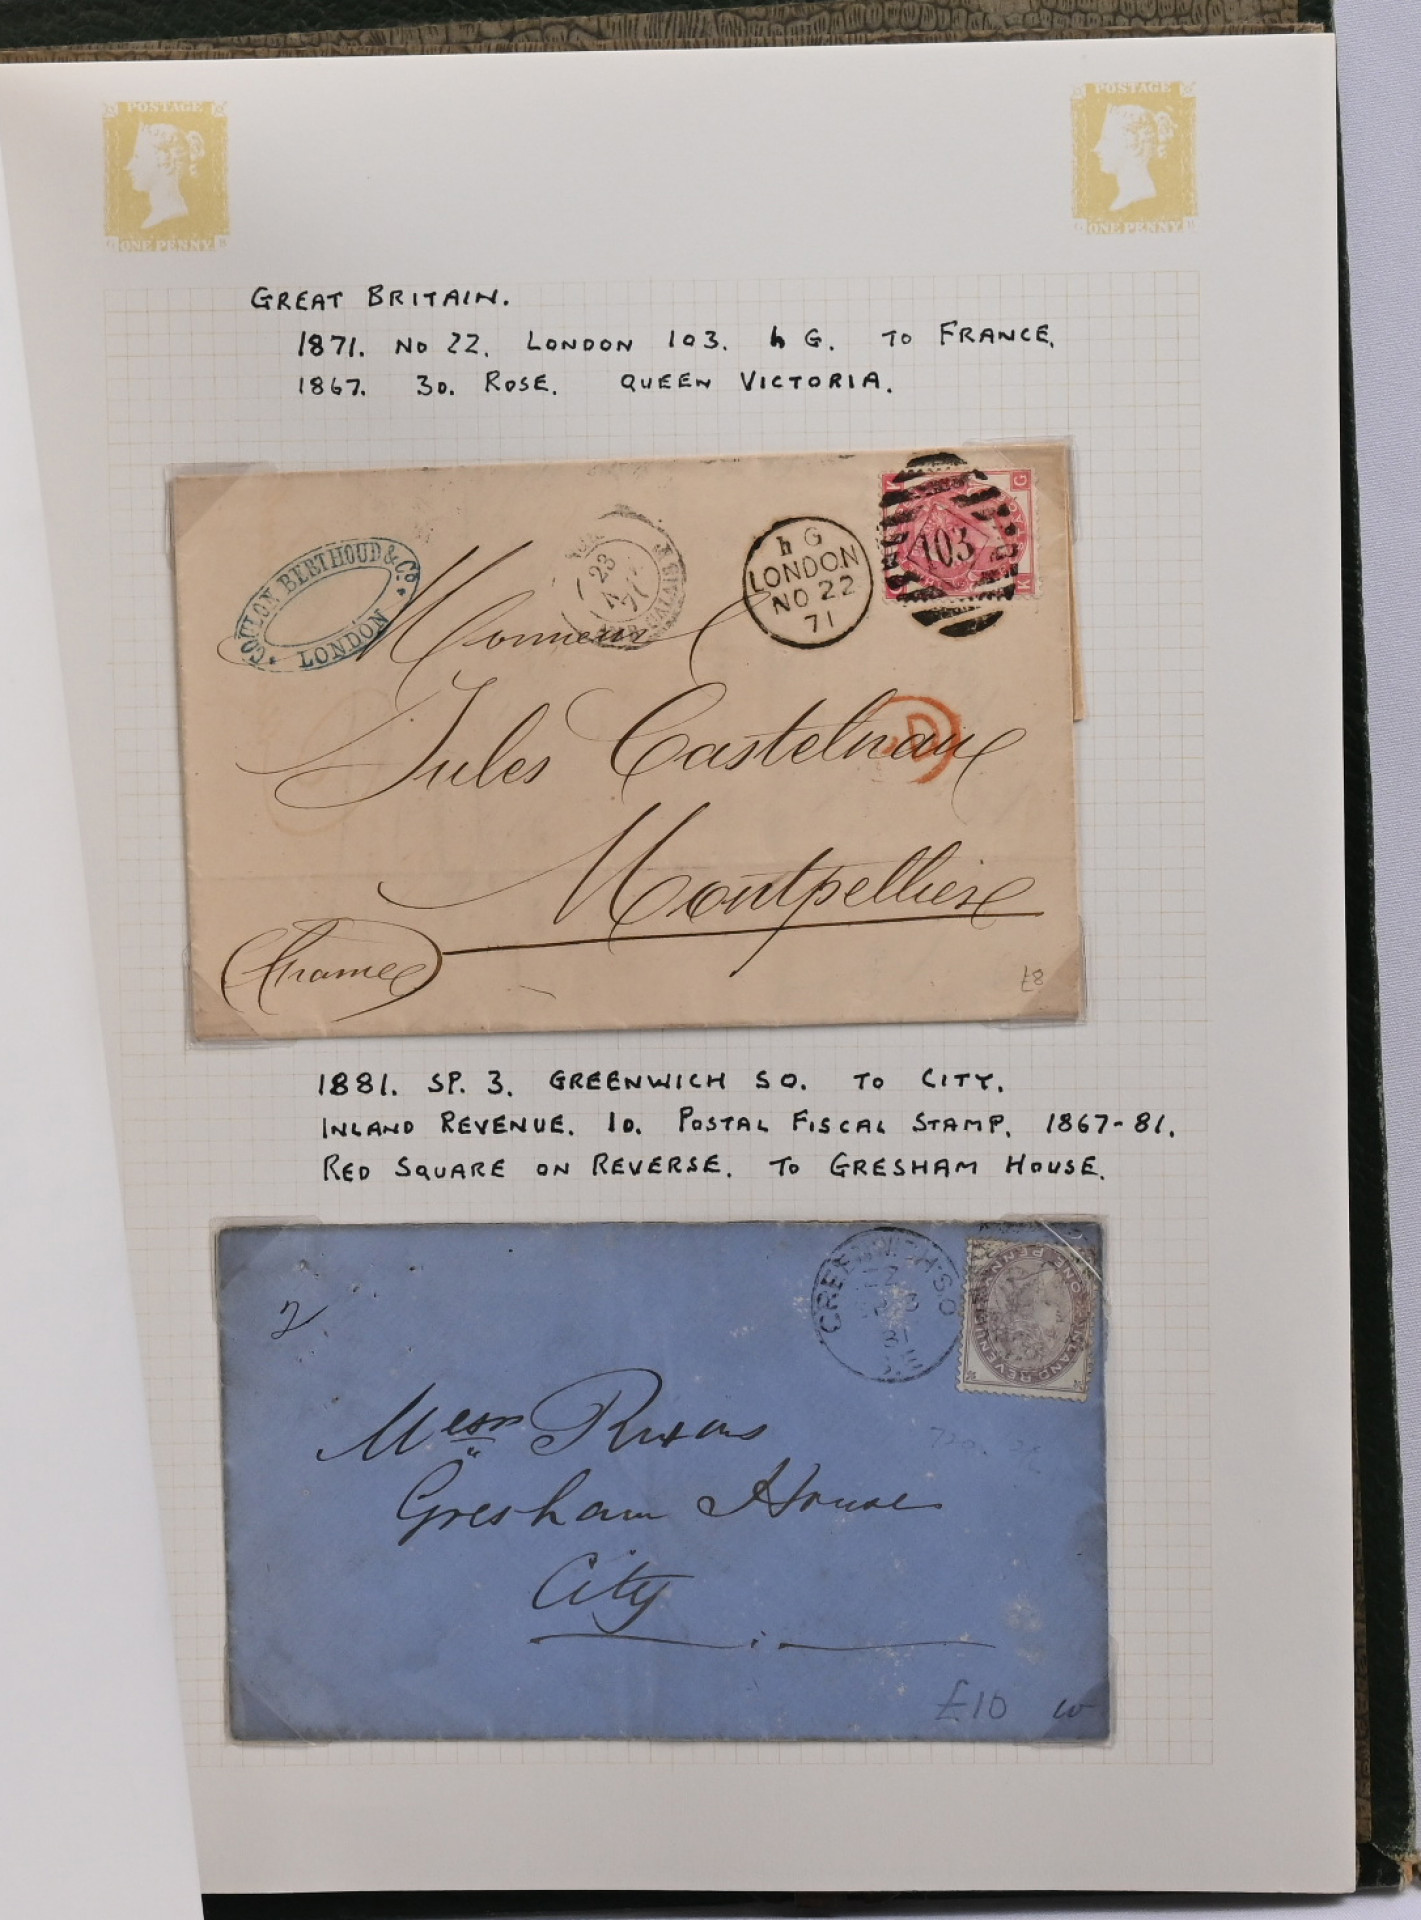 POSTAGE
ONE PENNY
POSTAGE
ONE PENNY
GREAT BRITAIN.
1871. NO 22. LONDON 103. h G. TO FRANCE.
1867. 3D. ROSE. QUEEN VICTORIA.
COULON BERTHOUD & Co
LONDON
23
71
CALAIS
h G
LONDON
NO 22
71
103
K G
K
D
Monsieur
Jules Castelnau
Montpellier
France
87
1881. SP. 3. GREENWICH SO. TO CITY.
INLAND REVENUE. 1D. POSTAL FISCAL STAMP. 1867-81.
RED SQUARE ON REVERSE. TO GRESHAM HOUSE.
2
GREENWICH S.O
81
INLAND REVENUE
ONE PENNY
Messrs
Gresham House
City
£10